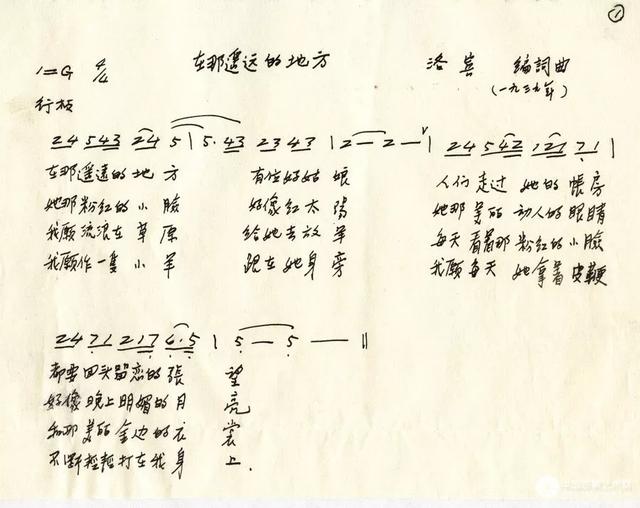 ①
1=G 4/4 在那遥远的地方 洛宾 编詞曲
行板 (一九三九年)
24 543 24 5 | 5·43 2343 | 2 — 2 — ᵛ | 24 542 121 71 |
在那遥遠的地方 有位好姑娘 人们走过她的帳房
她那粉红的小臉 好像红太陽 她那美丽动人的眼睛
我願流浪在草原 给她去放羊 每天看着那粉红的小臉
我願作一隻小羊 跟在她身旁 我願每天她拿着皮鞭
24 71 217 6·5 | 5 — 5 — ‖
都要回头留恋的張望
好像晚上明媚的月亮
和那美丽金边的衣裳
不断輕輕打在我身上.